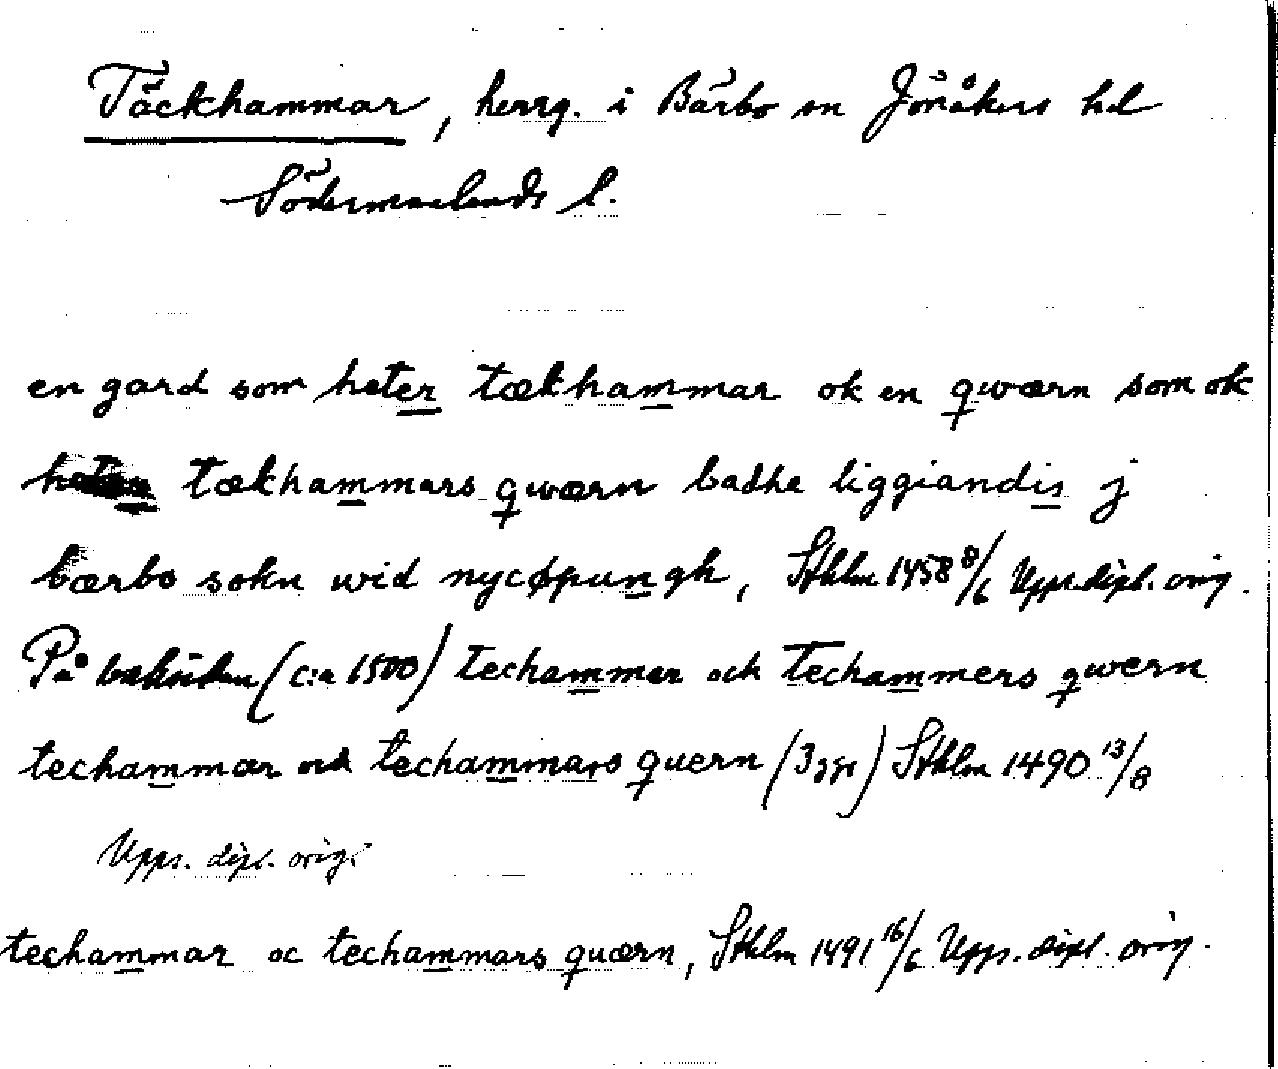 Täckhammar, herrg. i Bärbo sn Jönåkers hd
Södermanlands l.
en gard som heter tækhammar ok en qwærn som ok
heter tækhammars qwærn badhe liggiandis j
bærbo sokn wid nycøpungh, Sthlm 1458 8/6 Upps. dipl. orig.
På baksidan (c:a 1500) techammar och Techammers qwern
techammar och techammars quern (3 ggr) Sthlm 1490 13/8
Upps. dipl. orig.
techammar oc techammars quærn, Sthlm 1491 16/6 Upps. dipl. orig.